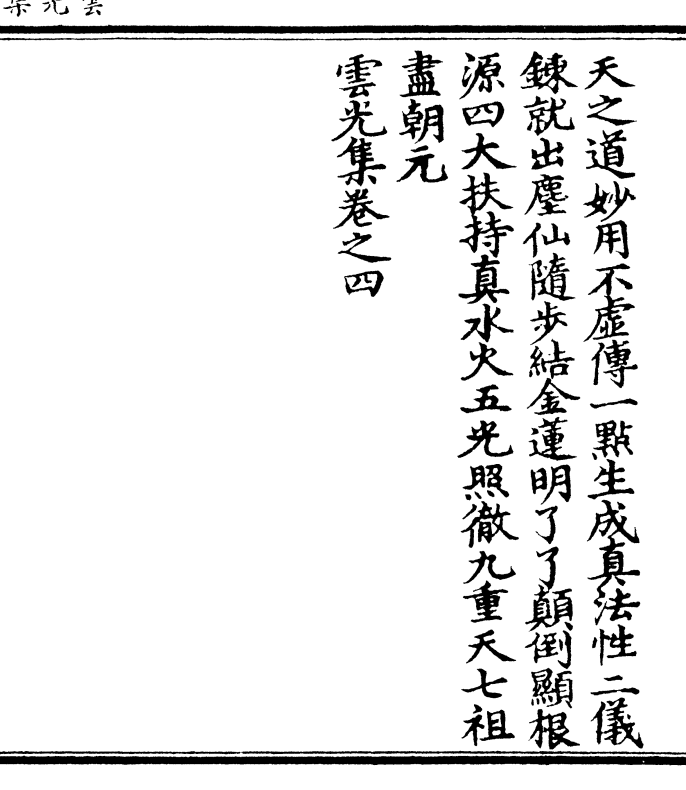 天之道妙用不虛傳一點生成真法性二儀
鍊就出塵仙隨步結金蓮明了了顛倒顯根
源四大扶持真水火五光照徹九重天七祖
盡朝元
雲光集卷之四